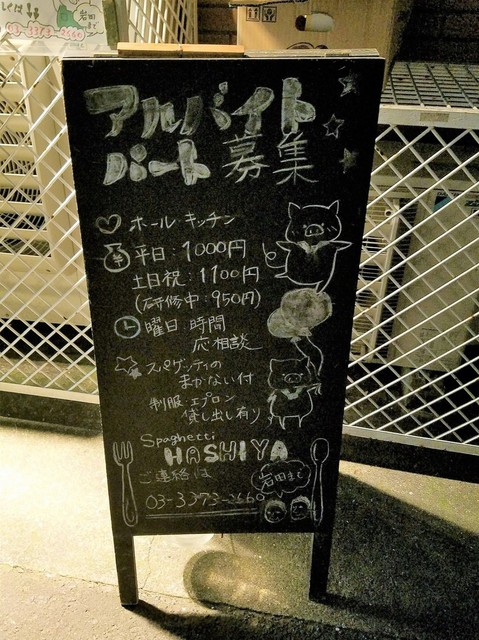 岩田まで
03-3373-2660
アルバイト
パート 募集
ホール キッチン
平日:1000円
土日祝:1100円
(研修中:950円)
曜日 時間
応相談
スパゲッティの
まかない付
制服:エプロン
貸し出し有り
Spaghetti
HASHIYA
ご連絡は
岩田まで
03-3373-2660